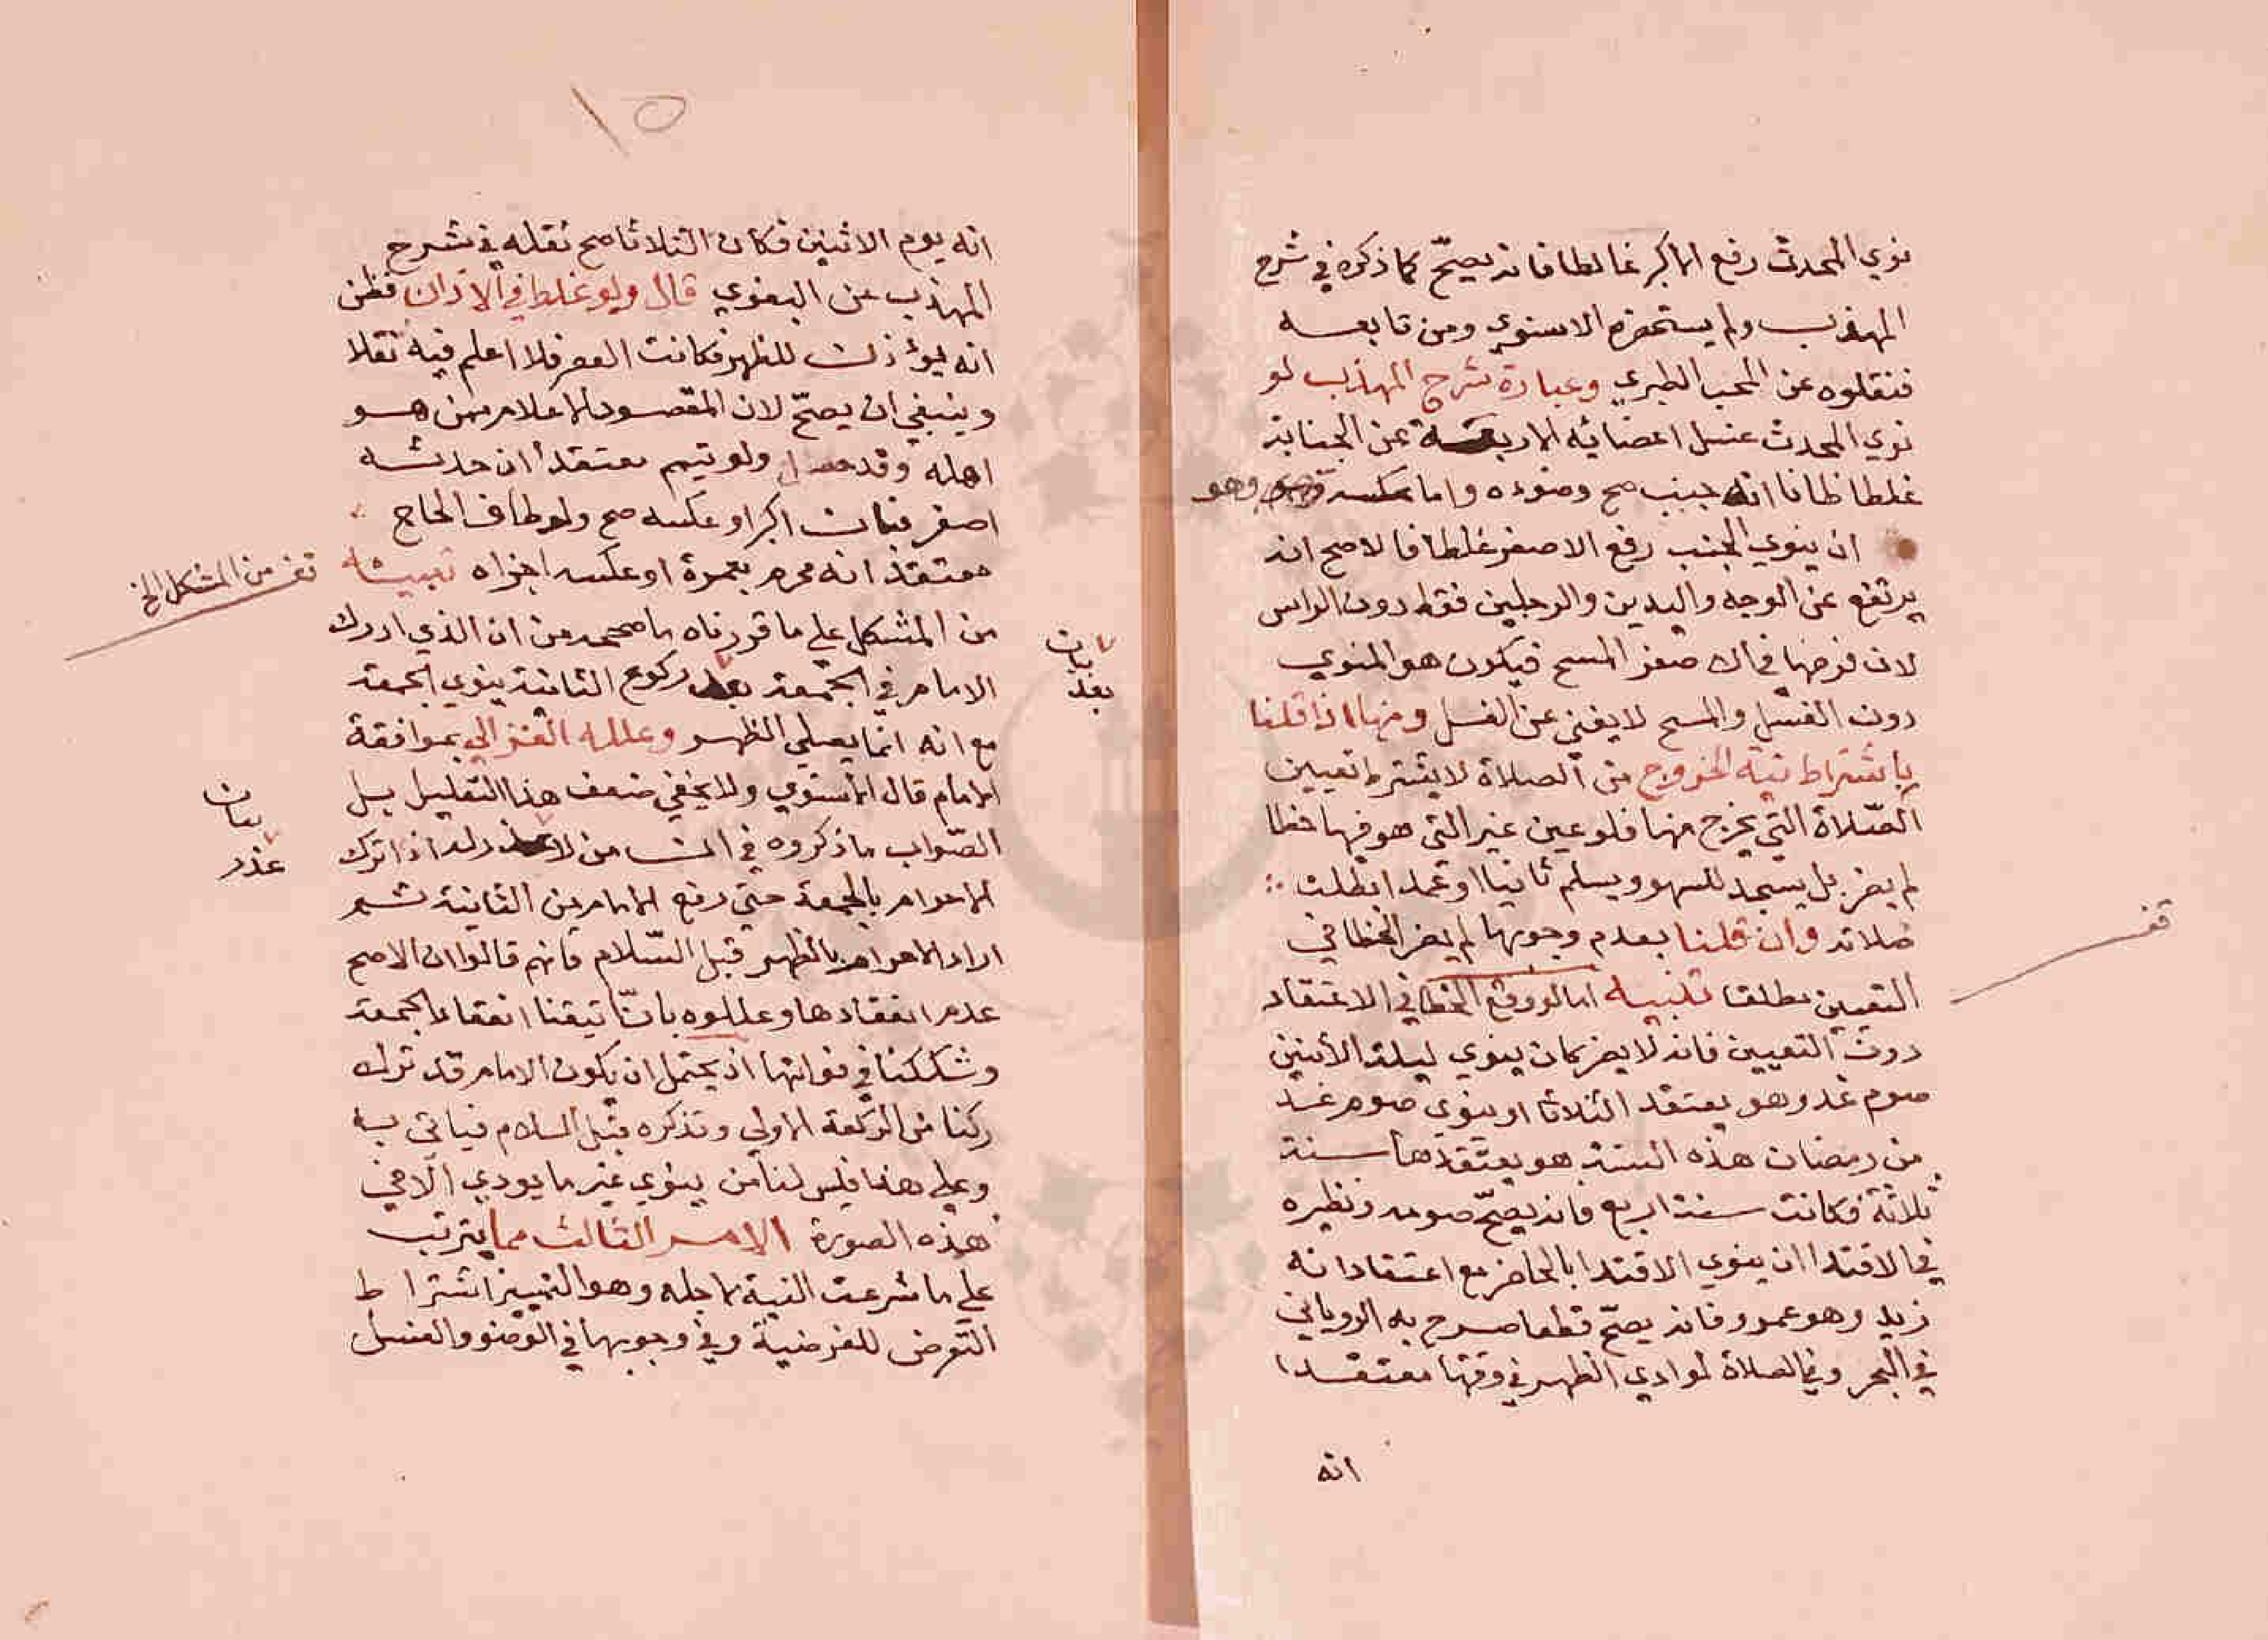 نوي المحدث رفع الاكبر غالطا فانه يصحّ كما ذكره في شرح
المهذب ولم يستحضره الاسنوي ومن تابعه
فنقلوه عن المحب الطبري وعبارة شرح المهذب لو
نوي المحدث غسل اعضائه الاربعة عن الجنابة
غلطا ظانا انه جنب صح وضوءه واما عكسه وهو
ان ينوي الجنب رفع الاصغر غلطا فالاصح انه
يرتفع عن الوجه واليدين والرجلين فقط دون الراس
لان فرضها في الاصغر المسح فيكون هو المنوي
دون الغسل والمسح لا يغني عن الغسل ومنها اذا قلنا
باشتراط نية الخروج من الصلاة لا يشترط تعيين
الصّلاة التي يخرج منها فلو عين غير التي هو فيها خطا
لم يضر بل يسجد للسهو ويسلم ثانيا او عمدا بطلت
صلاته وان قلنا بعدم وجوبها لم يضر الخطا في
التعيين مطلقا تنبيه اما لو وقع الخطا في الاعتقاد
دون التعيين فانه لا يضر كان ينوي ليلة الاثنين
صوم غد وهو يعتقد الثلاثا او ينوي صوم غد
من رمضان هذه السنة هو يعتقدها سنة
ثلاثة فكانت سنة اربع فانه يصحّ صومه ونظيره
في الاقتدا ان ينوي الاقتدا بالحاضر مع اعتقاد انه
زيد وهو عمرو فانه يصحّ قطعا صرح به الروياني
في البحر وفي الصلاة لو ادي الظهر في وقتها معتقدا
انه
قف
١٥
انه يوم الاثنين فكان الثلاثا صح نقله في شرح
المهذب عن البغوي قال ولو غلط في الاذان فظن
انه يوذن للظهر فكانت العصر فلا اعلم فيه نقلا
وينبغي ان يصحّ لان المقصود الاعلام ممن هو
اهله وقد حصل ولو تيمم معتقدا ان حدثه
اصغر فبان اكبر او عكسه صح ولو طاف الحاج
معتقدا انه محرم بعمرة او عكسه اجزاه تنبيه
من المشكل على ما قررناه ما صححه من ان الذي ادرك
الامام في الجمعة بعد ركوع الثانية ينوي الجمعة
مع انه انّما يصلي الظهر وعلله الغزالي بموافقة
الامام قال الاسنوي ولا يخفي ضعف هذا التعليل بل
الصّواب ما ذكروه في من لا عذر له اذا ترك
الاحرام بالجمعة حتي رفع الامام من الثانية ثم
اراد الاحرام بالظهر قبل السّلام فانهم قالوا ان الاصح
عدم انعقادها وعللوه بانّا تيقنا انعقاد الجمعة
وشككنا في فواتها اذ يحتمل ان يكون الامام قد ترك
ركنا من الركعة الاولي وتذكره قبل السلام فياتي به
وعلي هذا فليس لنا من ينوي غير ما يودي الا في
هذه الصورة الامر الثالث مما يترتب
علي ما شرعت النية لاجله وهو التمييز اشتراط
التعرض للفرضية وفي وجوبها في الوضو والغسل
قف من المشكل الخ
بيان
بعد
بيان
عذر